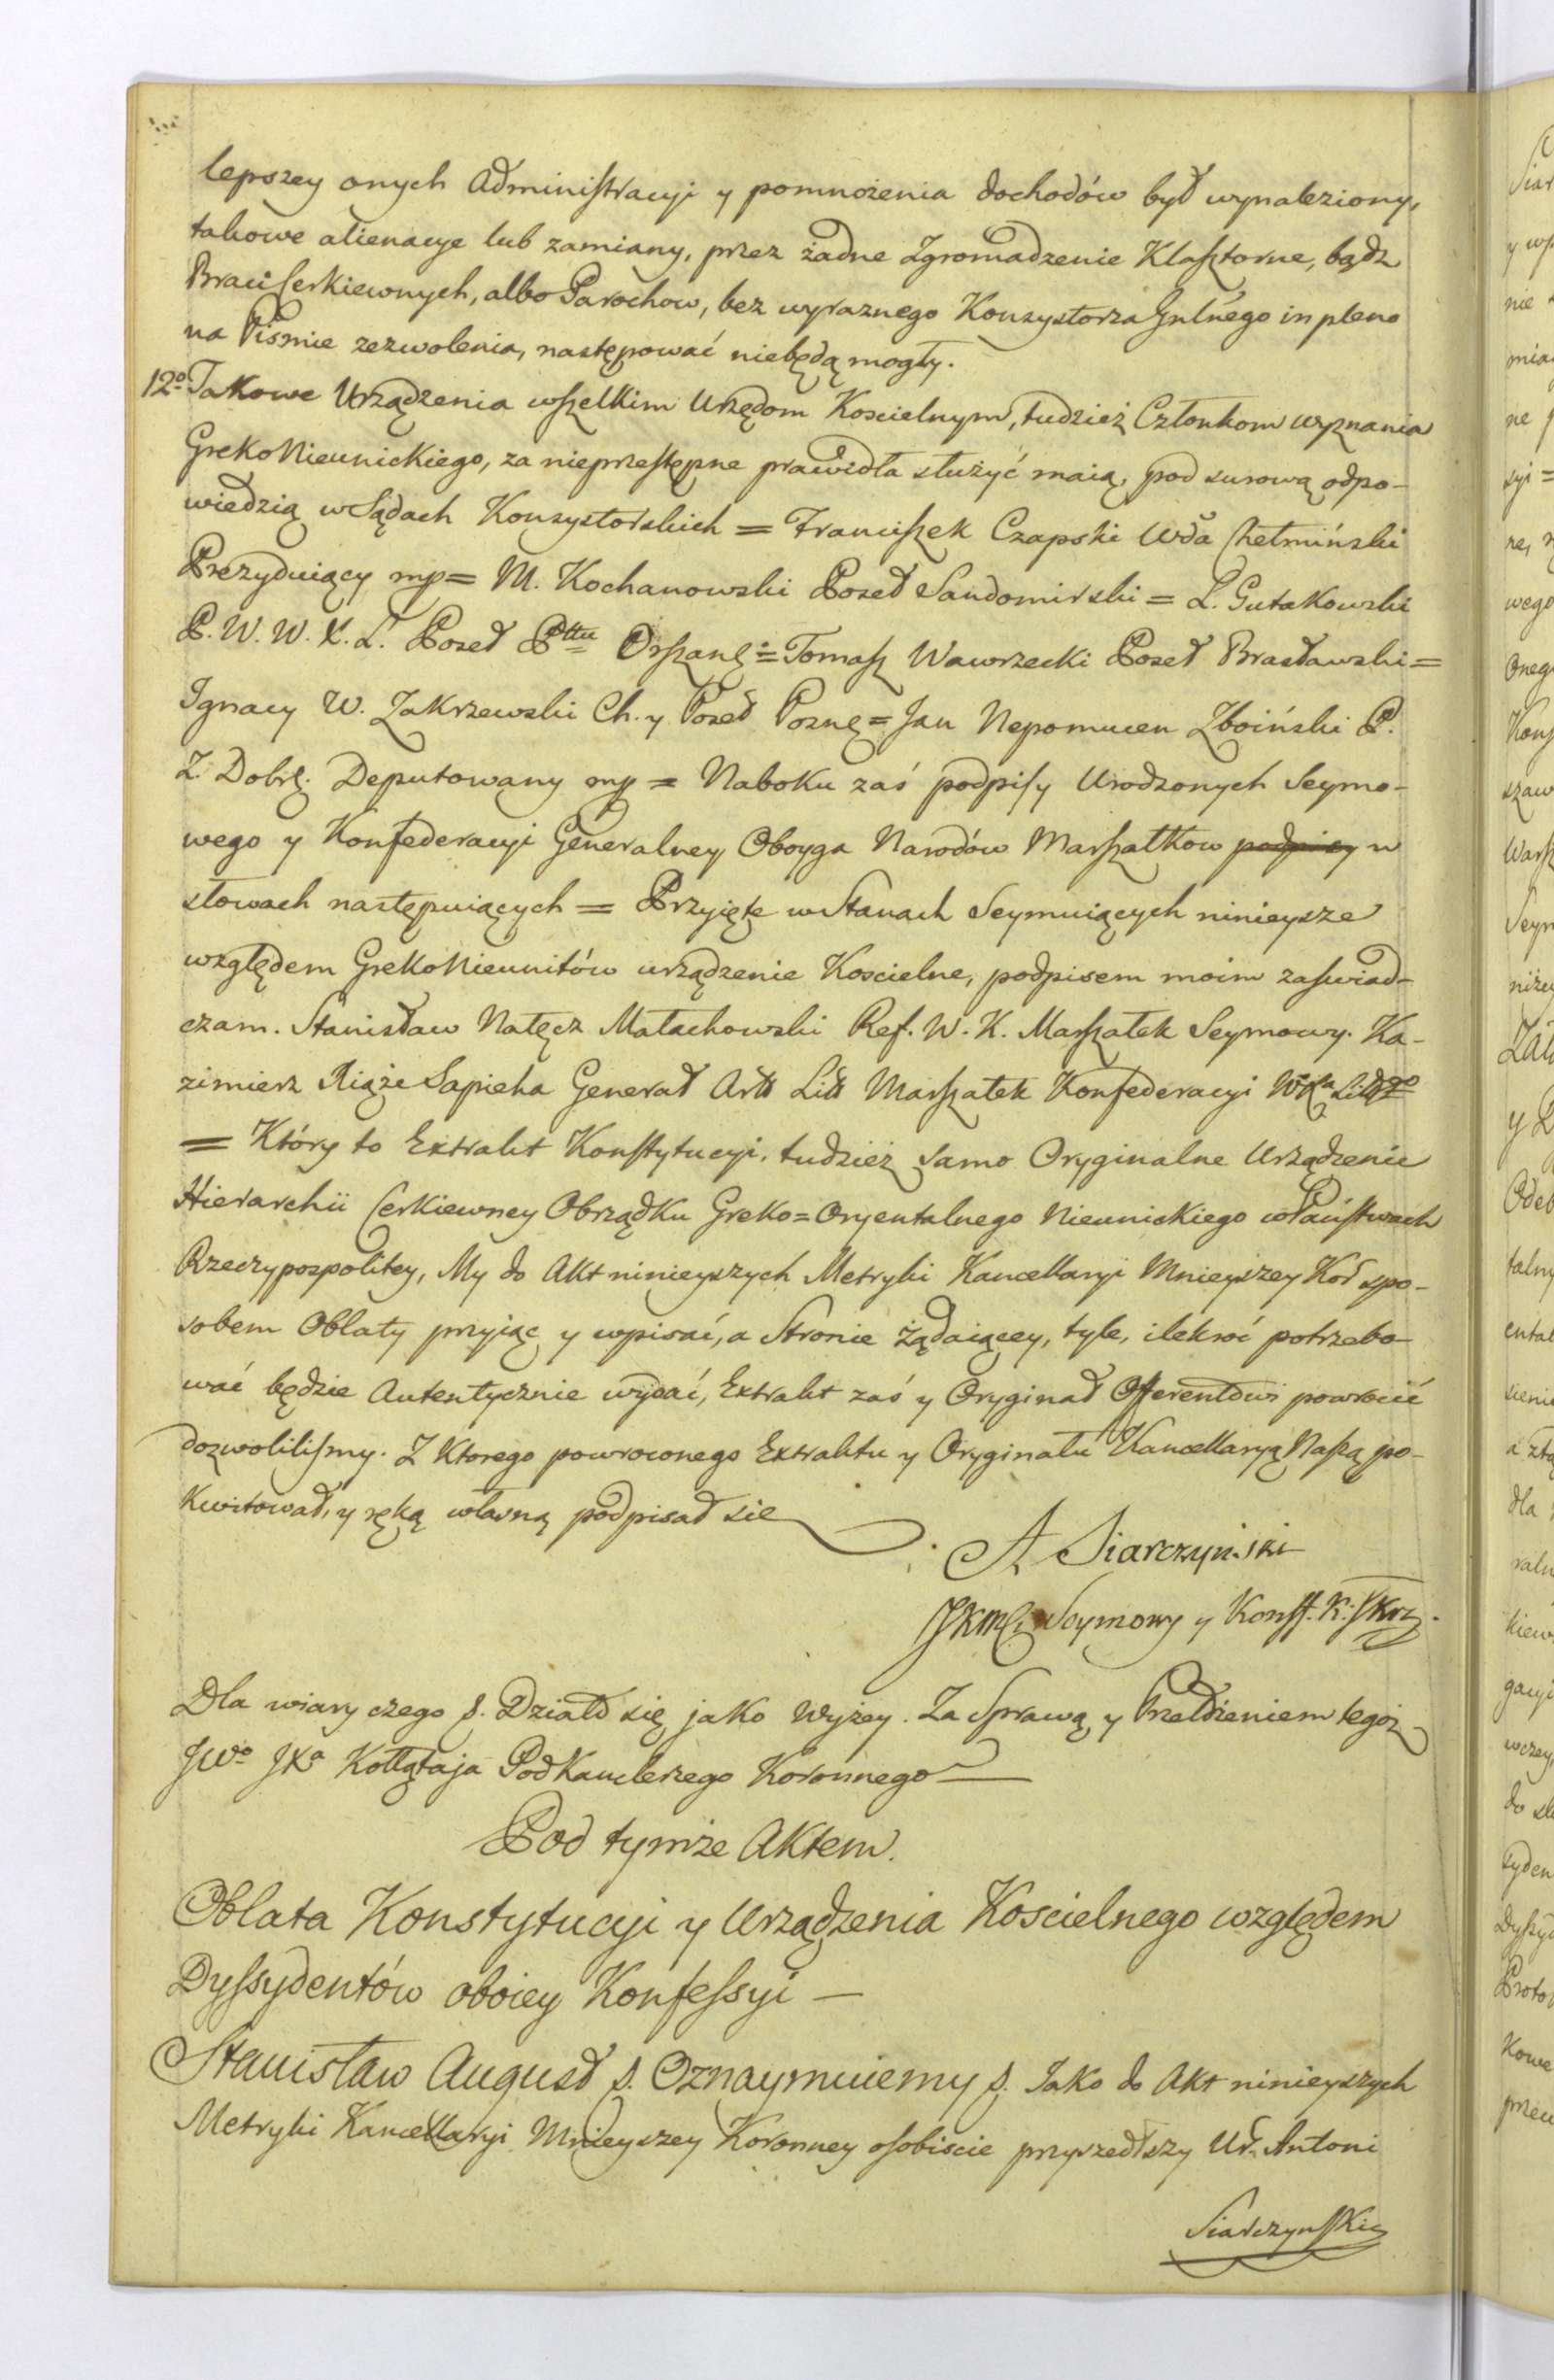 lepszey onych Administracyi y pomnożenia dochodów był wynaleziony,
takowe alienacye lub zamiany, przez żadne Zgromadzenie Klasztorne, bądz
Braci Cerkiewnych, albo Parochow, bez wyraznego Konsystorza Gnlnego in pleno
na Pismie zezwolenia, następować niebędą mogły.
12º Takowe Urządzenia wszelkim Urzędom Koscielnym, tudzież Członkom wyznania
GrekoNieunickiego, za nieprzestępne prawidła służyć maią, pod surową odpo-
wiedzią w Sądach Konsystorskich = Franciszek Czapski Wda Chełmiński
Prezyduiący mp = M. Kochanowski Poseł Sandomirski = L. Gutakowski
P. W. W. X. L. Poseł Pttu Orszanę = Tomasz Wawrzecki Poseł Brasławski =
Ignacy W. Zakrzewski Ch. y Poseł Poznę = Jan Nepomucen Zboiński P.
Z. Dobrę. Deputowany mp = Naboku zaś podpisy Urodzonych Seymo-
wego y Konfederacyi Generalney Oboyga Narodów Marszałkow podpisy w
słowach następuiących = Przyięte w Stanach Seymuiących ninieysze
względem GrekoNieunitów urządzenie Koscielne, podpisem moim zaswiad-
czam. Stanisław Nałęcz Małachowski Ref. W. K. Marszałek Seymowy. Ka-
zimierz Xiąże Sapieha Generał Artt Litt Marszałek Konfederacyi
= Który to Extrakt Konstytucyi, tudzież samo Oryginalne Urządzenie
Hierarchii Cerkiewney Obrządku Greko=Oryentalnego Nieunickiego w Państwach
Rzeczypospolitey, My do Akt ninieyszych Metryki Kancellaryi Mnieyszey Kor spo-
sobem Oblaty przyiąc y wpisać, a Stronie Żądaiącey, tyle, ilekroć potrzebo-
wać będzie Autentycznie wydać, Extrakt zaś y Oryginał Offerentowi powrocić
dozwolilismy. Z Ktorego powroconego Extraktu y Oryginału Kancellaryą Naszą po-
Kwitował, y ręką własną podpisał się
A Siarczyński
JKMci Seymowy y Konff. K: Skrz.
Dla wiary czego s. Działo się jako Wyżey. Za Sprawą y Przełożeniem tegoż
JWo JXa Kołłątaja PodKanclerzego Koronnego
Pod tymże Aktem.
Oblata Konstytucyi y Urządzenia Koscielnego względem
Dyssydentów oboiey Konfessyi —
Stanisław August s. Oznaymuiemy s. Jako do Akt ninieyszych
Metryki Kancellaryi Mnieyszey Koronney osobiscie przyszedłszy Ur. Antoni
Siarczynski